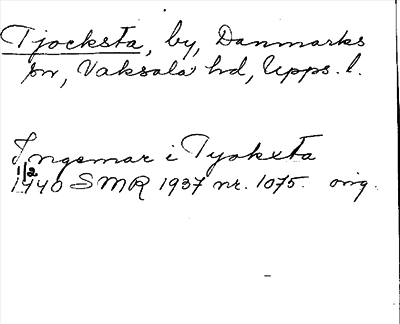 Tjocksta, by, Danmarks
sn, Vaksala hd, Upps. l.
Ingemar i Tyoksta
1/2
1440 SMR 1937 nr. 1075. orig.